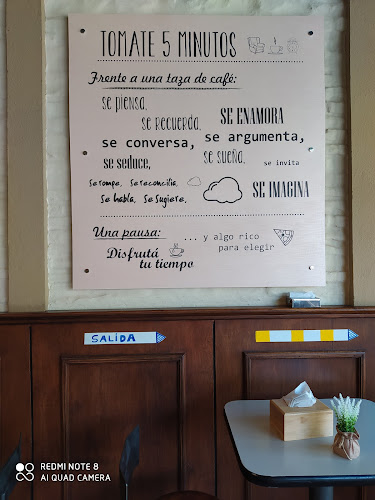 TOMATE 5 MINUTOS
Frente a una taza de café:
se piensa,
se recuerda,
SE ENAMORA
se conversa, se argumenta,
se seduce, se sueña, se invita
Se rompe, Se reconcilia,
Se habla, Se Sugiere,
SE IMAGINA
Una pausa:
Disfrutá
tu tiempo
... y algo rico
para elegir
SALIDA
REDMI NOTE 8
AI QUAD CAMERA